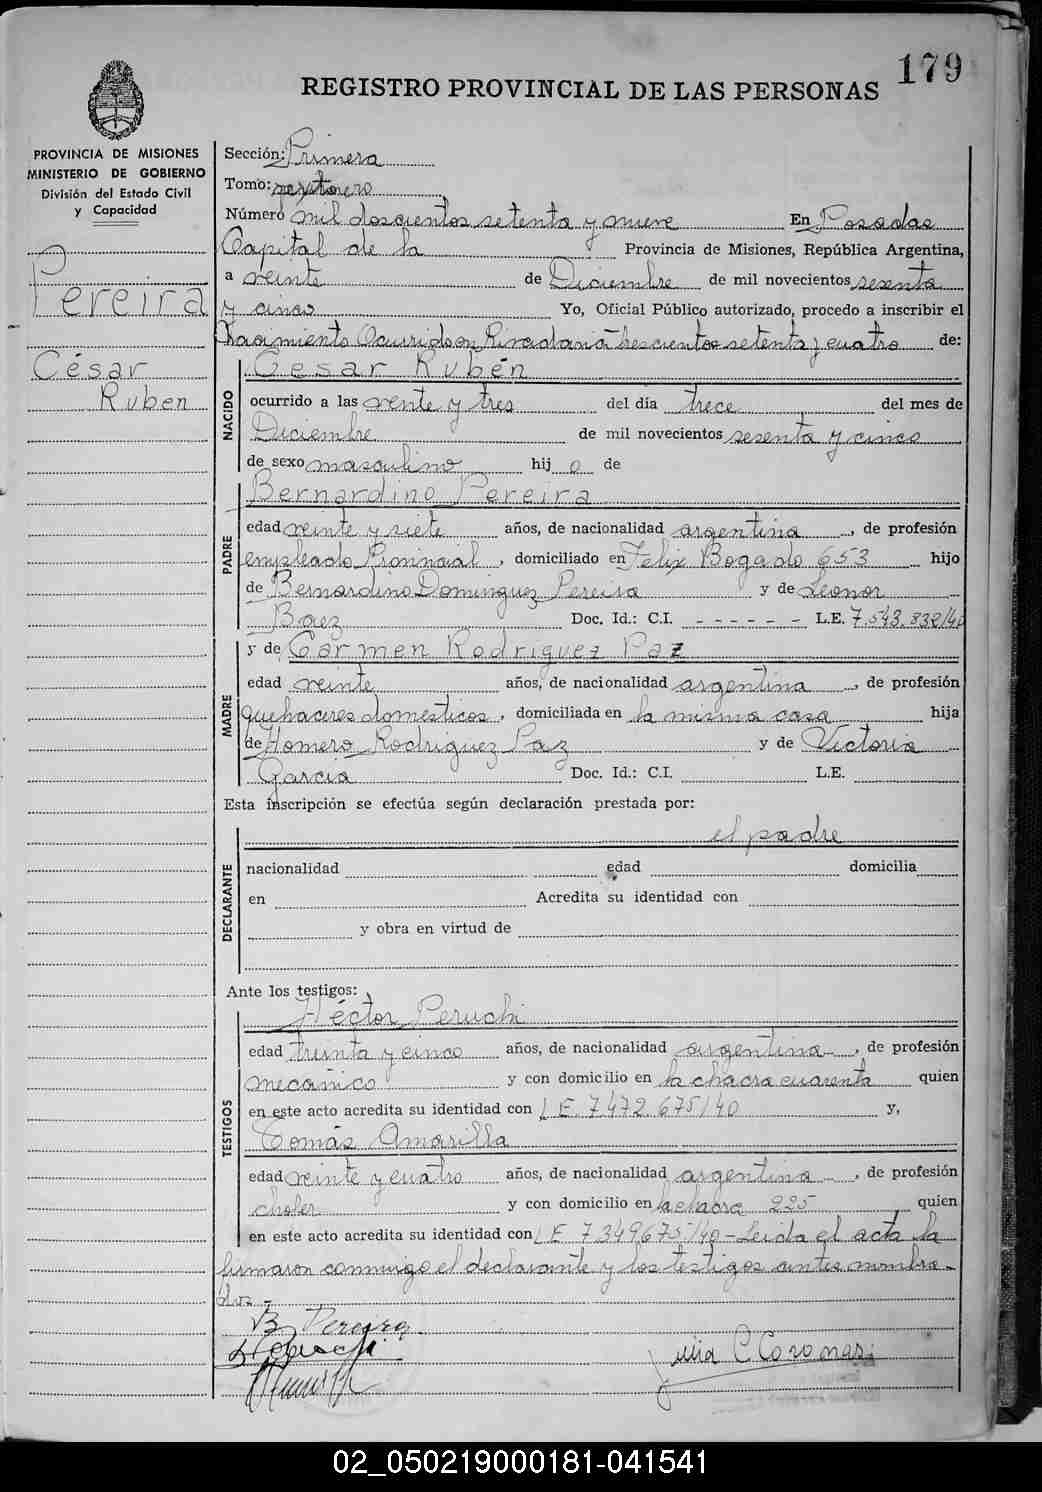 179
REGISTRO PROVINCIAL DE LAS PERSONAS
PROVINCIA DE MISIONES
MINISTERIO DE GOBIERNO
División del Estado Civil
y Capacidad
Pereira
César
Ruben
Sección: Primera
Tomo:
Número mil doscientos setenta y nueve En Posadas
Capital de la Provincia de Misiones, República Argentina,
a veinte de Diciembre de mil novecientos sesenta
y cinco Yo, Oficial Público autorizado, procedo a inscribir el
Nacimiento Ocurrido en Rivadavia trescientos setenta y cuatro de:
NACIDO
Cesar Rubén
ocurrido a las veinte y tres del día trece del mes de
Diciembre de mil novecientos sesenta y cinco
de sexo masculino hij o de
PADRE
Bernardino Pereira
edad veinte y siete años, de nacionalidad argentina, de profesión
empleado Provincial, domiciliado en Felix Bogado 653 hijo
de Bernardino Dominguez Pereira y de Leonor
Baez Doc. Id.: C.I. - - - - - - L.E. 7.543.832/40
y de Carmen Rodriguez Paz
MADRE
edad veinte años, de nacionalidad argentina, de profesión
quehaceres domésticos, domiciliada en la misma casa hija
de Homero Rodriguez Paz y de Victoria
Garcia Doc. Id.: C.I. L.E.
Esta inscripción se efectúa según declaración prestada por:
DECLARANTE
el padre
nacionalidad edad domicilia
en Acredita su identidad con
y obra en virtud de
Ante los testigos:
TESTIGOS
Héctor Peruchi
edad treinta y cinco años, de nacionalidad argentina, de profesión
mecánico y con domicilio en la chacra cuarenta quien
en este acto acredita su identidad con L E. 7.472.675/40 y,
Tomás Amarilla
edad veinte y cuatro años, de nacionalidad argentina, de profesión
chofer y con domicilio en la chacra 225 quien
en este acto acredita su identidad con L E 7.349675/40 - Leida el acta la
firmaron conmigo el declarante y los testigos antes nombra-
dos -
B Pereira
Julia C Coronar
02_050219000181-041541